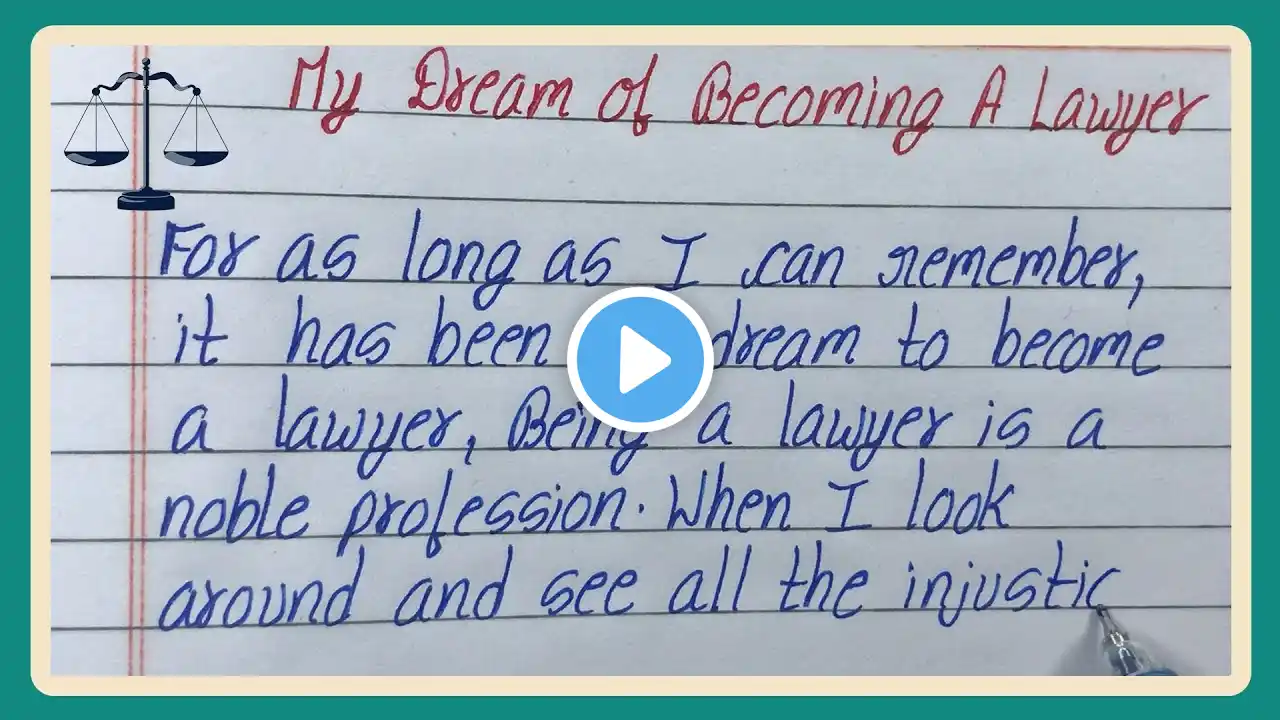 My Dream of Becoming A Lawyer
For as long as I can remember,
it has been dream to become
a lawyer, Being a lawyer is a
noble profession. When I look
around and see all the injustic